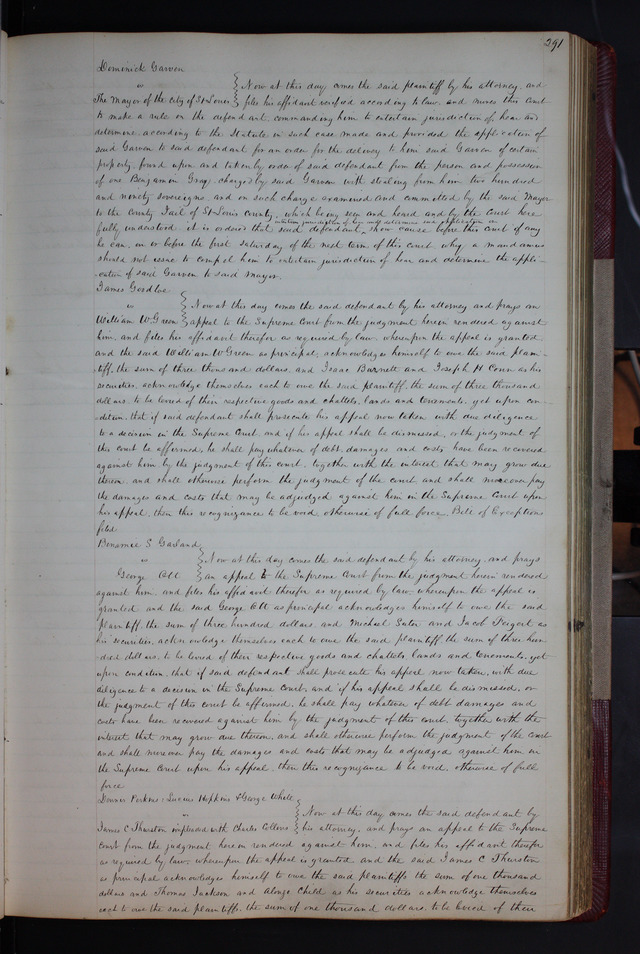 291
Dominick Garven
vs
The Mayor of the city of St Louis } Now at this day comes the said plaintiff by his attorney, and
files his affidavit verified according to law, and moves this Court
to make a rule on the defendant, commanding him to entertain jurisdiction of hear and
determine according to the Statute in such case made and provided the application of
said Garven to said defendant for an order for the delivery to him said Garven of certain
property found upon and taken by order of said defendant from the person and possession
of one Benjamin Gray, charged by said Garven with stealing from him two hundred
and ninety sovereigns, and on such charge examined and committed by the said Mayor
to the County Jail of St Louis County, which being seen and heard and by the Court here
entertain jurisdiction of hear and determine said application or
fully understood it is ordered that said defendant, show cause before this court if any
he can, on or before the first saturday of the next term of this court, why a mandamus
should not issue to compel him to entertain jurisdiction of hear and determine the appli-
-cation of said Garven to said Mayor.
James Goodloe
vs
William W Green } Now at this day comes the said defendant by his attorney and prays an
appeal to the Supreme Court from the judgment herein rendered against
him, and files his affidavit therefor as required by law, whereupon the appeal is granted
and the said William W Green as principal, acknowledges himself to owe the said plain-
-tiff, the sum of three thousand dollars, and Isaac Burnett and Joseph H Conn as his
securities, acknowledge themselves each to owe the said plaintiff, the sum of three thousand
dollars, to be levied of their respective goods and chattels, lands and tenements, yet upon con-
dition, that if said defendant shall prosecute his appeal now taken with due diligence
to a decision in the Supreme Court, and if his appeal shall be dismissed, or the judgment of
this court be affirmed, he shall pay whatever of debt, damages and costs have been recovered
against him by the judgment of this court, together with the interest that may grow due
thereon, and shall otherwise perform the judgment of the court, and shall moreover pay
the damages and costs that may be adjudged against him in the Supreme Court upon
his appeal, then this recognizance to be void otherwise of full force. Bill of Exceptions
filed
S. Garland
vs
George Ott } Now at this day comes the said defendant by his attorney and prays
an appeal to the Supreme Court from the judgment herein rendered
against him, and files his affidavit therefor as required by law, whereupon the appeal is
granted and the said George Ott as principal acknowledges himself to owe the said
plaintiff, the sum of three hundred dollars, and Michael Suter and Jacob Feigert as
his securities, acknowledge themselves each to owe the said plaintiff the sum of three hun
dred dollars, to be levied of their respective goods and chattels, lands and tenements, yet
upon condition, that if said defendant shall prosecute his appeal now taken, with due
diligence to a decision in the Supreme Court, and if his appeal shall be dismissed, or
the judgment of this court be affirmed, he shall pay whatever of debt damages and
costs have been recovered against him by the judgment of this court, together with the
interest that may grow due thereon, and shall otherwise perform the judgment of the court
and shall moreover pay the damages and costs that may be adjudged against him in
the Supreme Court upon his appeal, then this recognizance to be void, otherwise of full
force
Perkins, Lucius Hopkins & George White
vs
James C Thurston impleaded with Charles Collins } Now at this day comes the said defendant by
his attorney, and prays an appeal to the Supreme
Court from the judgment herein rendered against him, and files his affidavit therefor
as required by law, whereupon the appeal is granted and the said James C Thurston
as principal acknowledges himself to owe the said plaintiffs the sum of one thousand
dollars and Thomas Jackson and Alonzo Child as his securities acknowledge themselves
each to owe the said plaintiffs, the sum of one thousand dollars, to be levied of their